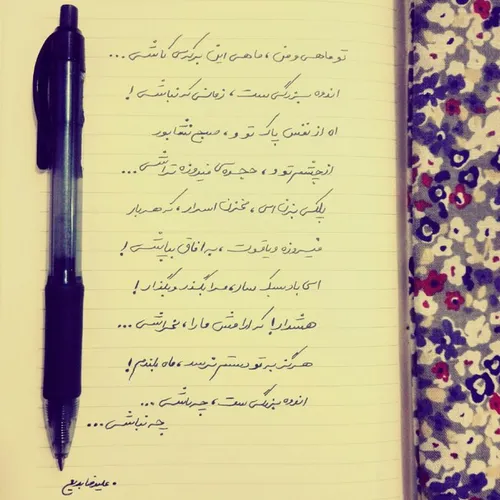 تو ماهی و من، ماهی این برکه‌ی کاشی...
اندوه بزرگی ست، زمانی که نباشی!
آه از نفس پاک تو و، صبح نشابور
از چشم تو و، حجره‌ی فیروزه تراشی...
پلکی بزن ای، مخزن اسرار، که هر بار
فیروزه و یاقوت، به آفاق بپاشی!
ای باد سبک سار، مرا بگذر و بگذار!
هشدار! که آرامش ما را، نخراشی...
هرگز به تو دستم نرسد، ماه بلندم!
اندوه بزرگی ست، چه باشی...
چه نباشی...
• علیرضا بدیع